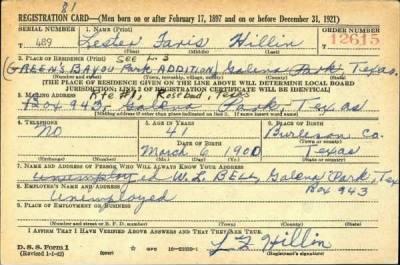 81
REGISTRATION CARD—(Men born on or after February 17, 1897 and on or before December 31, 1921)
SERIAL NUMBER
1. NAME (Print)
ORDER NUMBER
T 489
Lester Faris Hillin
12615
(First) (Middle) (Last)
2. PLACE OF RESIDENCE (Print) SEE L-3
(GREEN'S BAYOU PARK ADDITION) Galena Park, Texas
(Number and street) (Town, township, village, or city) (County) (State)
[THE PLACE OF RESIDENCE GIVEN ON THE LINE ABOVE WILL DETERMINE LOCAL BOARD
JURISDICTION; LINE 2 OF REGISTRATION CERTIFICATE WILL BE IDENTICAL]
3. MAILING ADDRESS Rte #1, Rosebud, Texas
Box 943, Galena Park, Texas
[Mailing address if other than place indicated on line 2. If same insert word same]
4. TELEPHONE
5. AGE IN YEARS
6. PLACE OF BIRTH
No
41
Burleson Co.
DATE OF BIRTH
(Town or county)
March 6 1900
Texas
(Exchange) (Number)
(Mo.) (Day) (Yr.)
(State or country)
7. NAME AND ADDRESS OF PERSON WHO WILL ALWAYS KNOW YOUR ADDRESS
Unemployed W.L. BELL, Galena Park, Tex
8. EMPLOYER'S NAME AND ADDRESS
Box 943
Unemployed
9. PLACE OF EMPLOYMENT OR BUSINESS
(Number and street or R. F. D. number) (Town) (County) (State)
I AFFIRM THAT I HAVE VERIFIED ABOVE ANSWERS AND THAT THEY ARE TRUE.
D. S. S. Form 1
(Revised 1-1-42)
L F Hillin
(Registrant's signature)